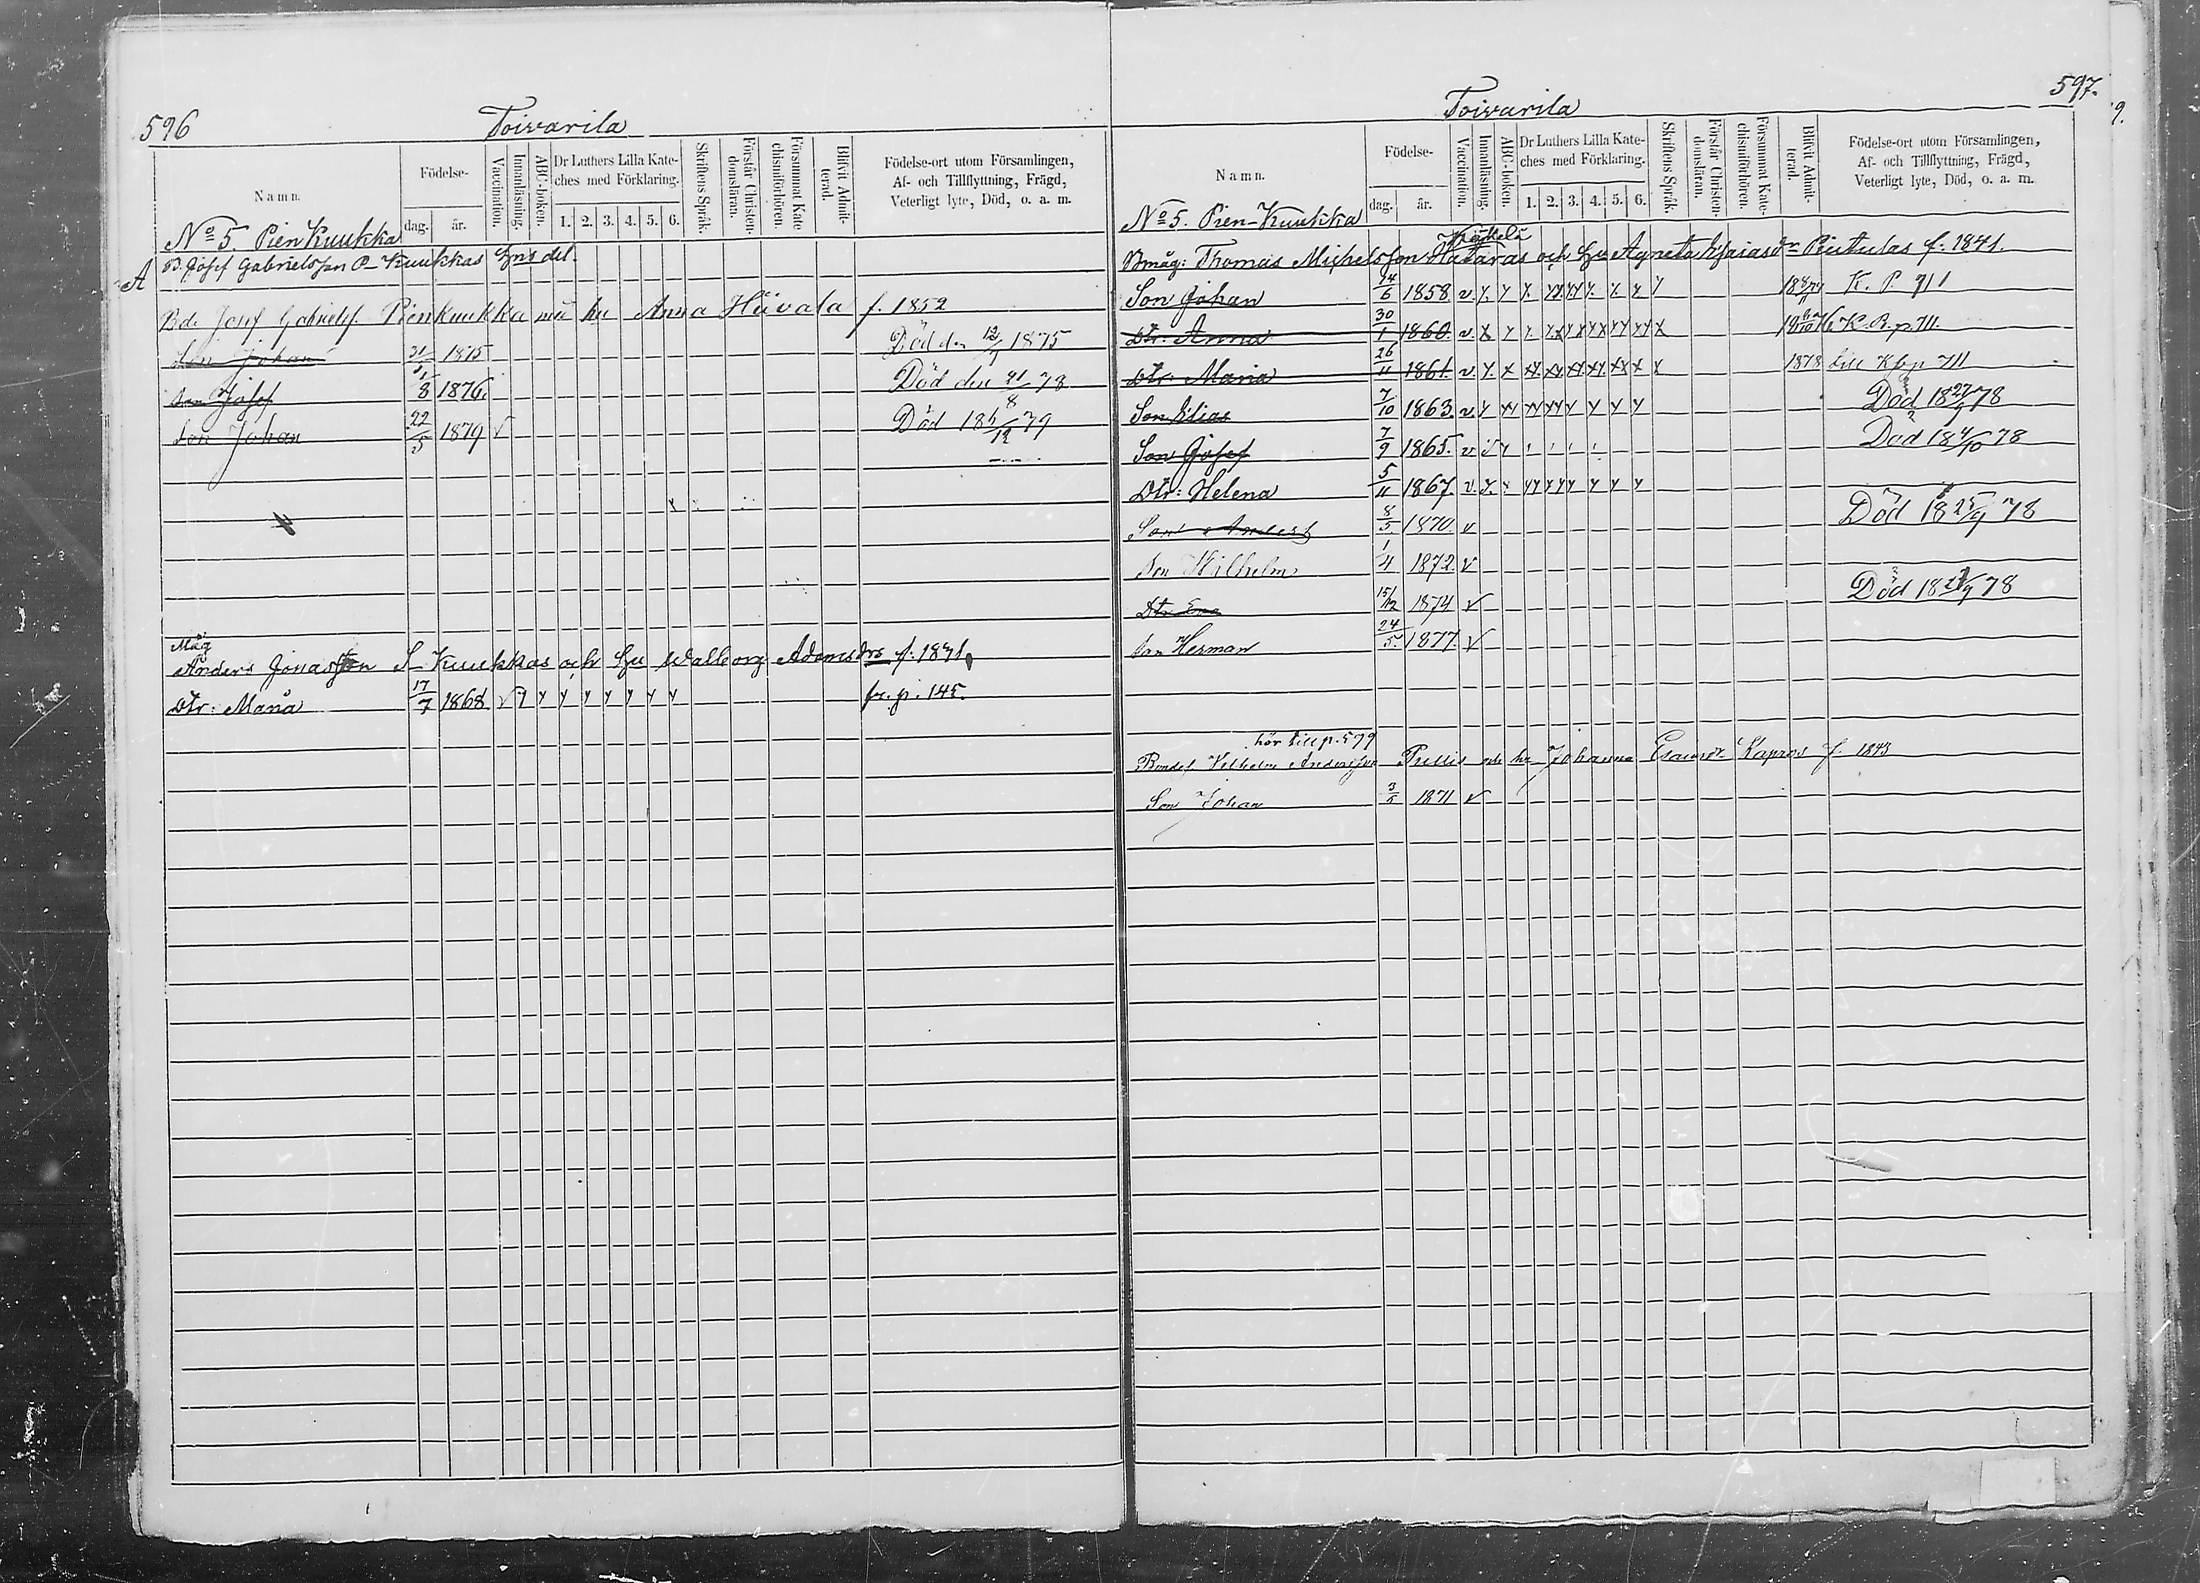 596
Toivarila
Namn.
Födelse-
dag.
år.
Vaccination.
Innanläsning.
ABC-boken.
Dr Luthers Lilla Kate-
ches med Förklaring.
1. 2. 3. 4. 5. 6.
Skriftens Språk.
Förstår Christen-
domsläran.
Försummat Kate
chismiförhören.
Blifvit Admit-
terad.
Födelse-ort utom Församlingen,
Af- och Tillflyttning, Frägd,
Veterligt lyte, Död, o. a. m.
No 5. Pien Kuukka
A B. Josef Gabrielsson P-Kuukkas hns del.
Bde Josef Gabrielss. Pienkuukka mü hu Anna Hüvala f. 1852
Son Johan 31/1 1875 Död den 12/7 1875
Son Josef 1/8 1876. Död den 21/8 78
Son Johan 22/5 1879 v Död 18 5/12 79
Måg
Anders Jonasson S-Kuukkas och hu Walborg Adamsdrs f. 1841
Dtr: Maria 17/7 1868 v y y y y y y y y fr. p. 145.
597.
Toivarila
Namn.
Födelse-
dag.
år.
Vaccination.
Innanläsning.
ABC-boken.
Dr Luthers Lilla Kate-
ches med Förklaring.
1. 2. 3. 4. 5. 6.
Skriftens Språk.
Förstår Christen-
domsläran.
Försummat Kate-
chismiförhören.
Blifvit Admit-
terad.
Födelse-ort utom Församlingen,
Af- och Tillflyttning, Frägd,
Veterligt lyte, Död, o. a. m.
No 5. Pien-Kuukka
Bmåg: Thomas Michelsson Hataras och hu Agneta Esaiasdr Pintulas f. 1841.
Son Johan 14/6 1858 v. K. P. 711
Dtr: Anna 30/1 1860. v. K. B. p. 711.
Dtr: Maria 26/11 1861. v. 1878 till Kbp 711
Son Elias 7/10 1863 v. Död 18 27/9 78
Son Josef 7/9 1865. v Död 18 4/10 78
Dtr: Helena 5/11 1867. v.
Son Anders 8/5 1870. v Död 18 25/9 78
Son Wilhelm 1/4 1872. v
Dtr Eva 15/12 1874 v Död 18 27/9 78
Son Herman 24/5. 1877. v
hör till p. 579
Bondes. Vilhelm Andersson Pullis och hu Johanna Esaiasdr Kapros f. 1843
Son Johan 3/5 1871 v
9.